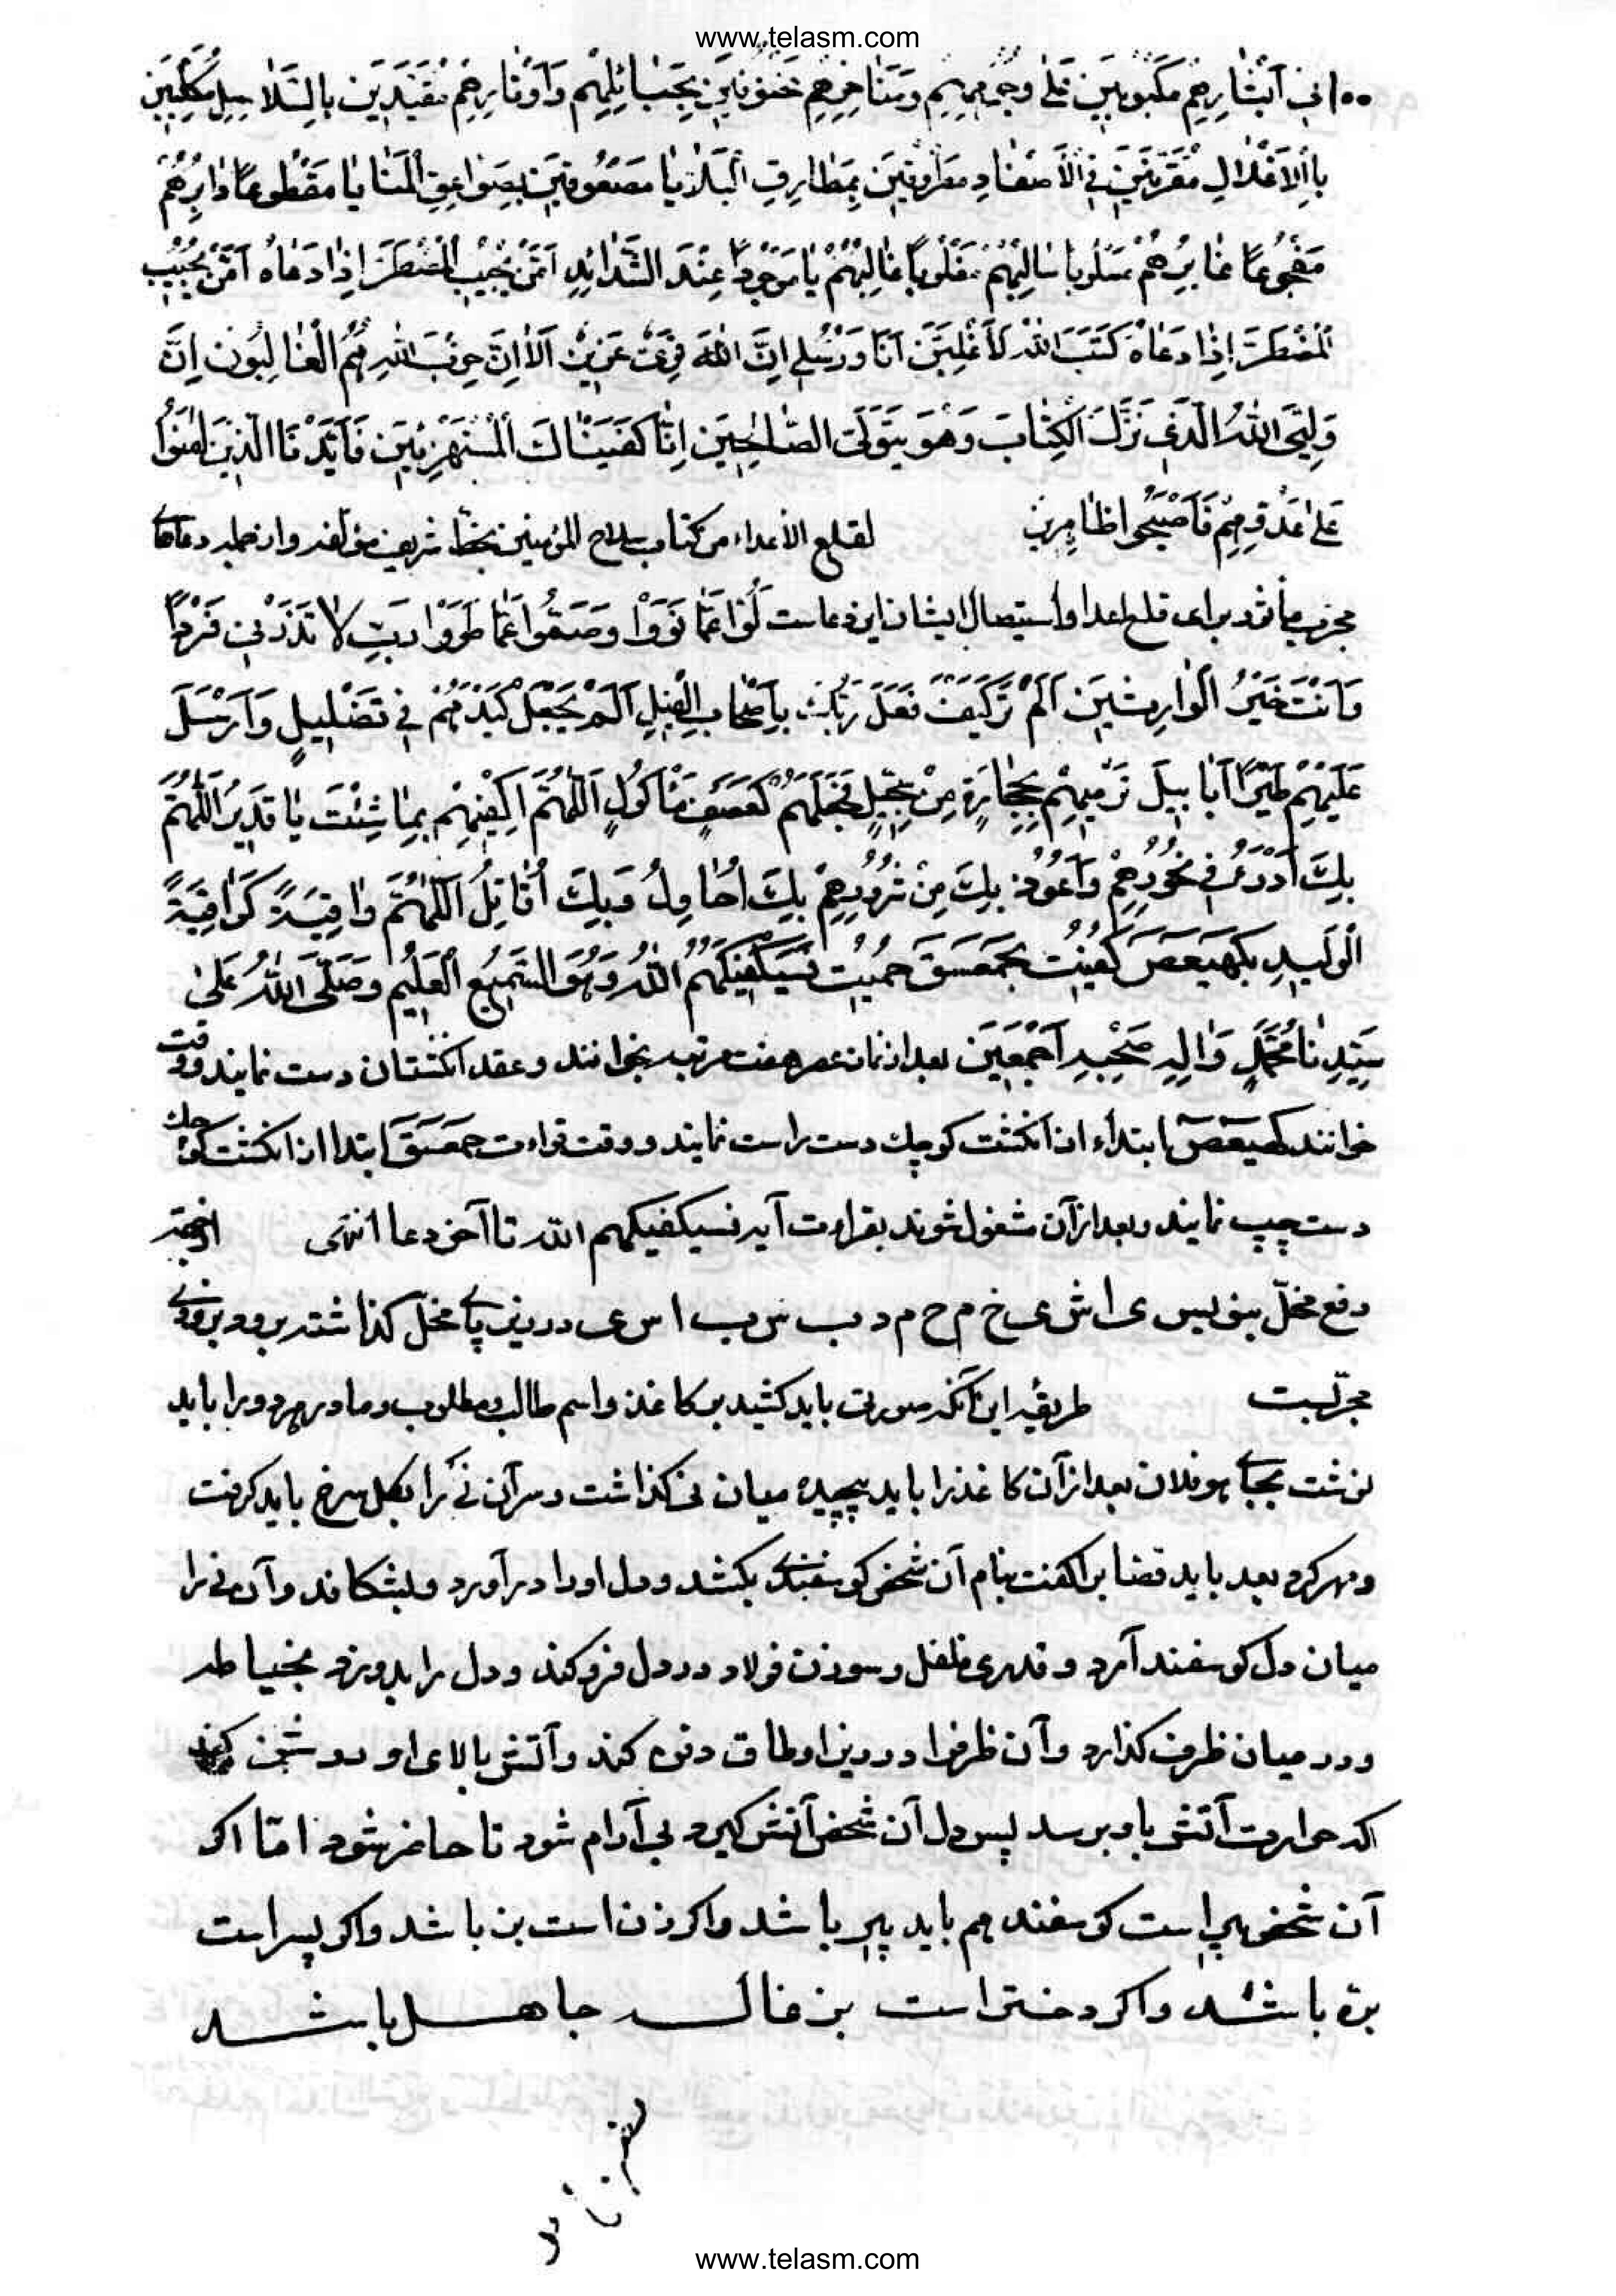 www.telasm.com
مَكْبُوبِينَ عَلى وُجُوهِهِمْ وَمَنَاخِرِهِمْ مَخْنُوقِينَ بِحَبَائِلِهِمْ وَأَوْتَارِهِمْ مُقَيَّدِينَ بِالسَّلَاسِلِ مُكَبَّلِينَ
بِالْأَغْلَالِ مُقَرَّنِينَ فِي الْأَصْفَادِ مَطْرُوقِينَ بِمَطَارِقِ الْبَلَايَا مَصْعُوقِينَ بِصَوَاعِقِ الْمَنَايَا مَقْطُوعًا دَابِرُهُمْ
مَفْجُوعًا غَابِرُهُمْ مَسْلُوبًا سَالِبُهُمْ مَغْلُوبًا غَالِبُهُمْ يَا مَوْجُودًا عِنْدَ الشَّدَائِدِ أَمَّنْ يُجِيبُ الْمُضْطَرَّ إِذَا دَعَاهُ أَمَّنْ يُجِيبُ
الْمُضْطَرَّ إِذَا دَعَاهُ كَتَبَ اللهُ لَأَغْلِبَنَّ أَنَا وَرُسُلِي إِنَّ اللهَ قَوِيٌّ عَزِيزٌ أَلَا إِنَّ حِزْبَ اللهِ هُمُ الْغَالِبُونَ إِنَّ
وَلِيِّيَ اللهُ الَّذِي نَزَّلَ الْكِتَابَ وَهُوَ يَتَوَلَّى الصَّالِحِينَ إِنَّا كَفَيْنَاكَ الْمُسْتَهْزِئِينَ فَأَيَّدْنَا الَّذِينَ آمَنُوا
عَلَى عَدُوِّهِمْ فَأَصْبَحُوا ظَاهِرِينَ لقلع الأعداء من كتاب سلاح المؤمنين بخط شريف مؤلفه واز جمله دعاهاى
مجرب مأثوره براى قلع اعدا واستيصال ايشان اين دعاست لَوَّوْا عَمَّا نَوَوْا وَصَمُّوا عَمَّا طَوَوْا رَبِّ لَا تَذَرْنِي فَرْدًا
وَأَنْتَ خَيْرُ الْوَارِثِينَ أَلَمْ تَرَ كَيْفَ فَعَلَ رَبُّكَ بِأَصْحَابِ الْفِيلِ أَلَمْ يَجْعَلْ كَيْدَهُمْ فِي تَضْلِيلٍ وَأَرْسَلَ
عَلَيْهِمْ طَيْرًا أَبَابِيلَ تَرْمِيهِمْ بِحِجَارَةٍ مِنْ سِجِّيلٍ فَجَعَلَهُمْ كَعَصْفٍ مَأْكُولٍ اَللّٰهُمَّ اكْفِنِيهِمْ بِمَا شِئْتَ يَا قَدِيرُ اَللّٰهُمَّ
بِكَ أَدْرَءُ فِي نُحُورِهِمْ وَأَعُوذُ بِكَ مِنْ شُرُورِهِمْ بِكَ أُحَاوِلُ وَبِكَ أُقَاتِلُ اَللّٰهُمَّ وَاقِيَةً كَوَاقِيَةِ
الْوَلِيدِ بِكهيعص كُفِيتُ بِحمعسق حُمِيتُ فَسَيَكْفِيكَهُمُ اللهُ وَهُوَ السَّمِيعُ الْعَلِيمُ وَصَلَّى اللهُ عَلَى
سَيِّدِنَا مُحَمَّدٍ وَآلِهِ وَصَحْبِهِ أَجْمَعِينَ بعد از نماز عصر هفت مرتبه بخوانند وعقد انگشتان دست نمايند ووقت
خوانند كهيعص ابتداء از انگشت كوچك دست راست نمايند ووقت قراءت حمعسق ابتدا از انگشت كوچك
دست چپ نمايند وبعد از آن مشغول شوند بقراءت آيه فسيكفيكهم الله تا آخر دعا انتهى
دفع مخلّ بنويس ى ا ش ى خ م ح م د ب س ب ا س ى در زير پاى مخلّ گذاشته برود بزودى
مجرّبست طريقه اين آنكه صورتى بايد كشيد بر كاغذ واسم طالب ومطلوب ومادر هر دو را بايد
نوشت بجاى هو فلان بعد از آن كاغذ را بايد پيچيده ميان نى گذاشت وسر آن نى را بگل سرخ بايد گرفت
ومهر كرد بعد بايد قصاب را گفت بنام آن شخص گوسفندى بكشد ودل او را درآورد وبشكافد وآن نى را
ميان دل گوسفند آرد وقدرى فلفل وسوزن فولاد در دل فرو كند ودل را بدوزد بخياطه
ودر ميان ظرف گذارد وآن ظرف را در زير اوطاق دفن كند وآتش بالاى او روشن كند
كه حرارت آتش باو برسد پس دل آن شخص آتش گيرد بى آرام شود تا حاضر شود امّا اگر
آن شخص پير است گوسفند هم بايد پير باشد واگر زن است بز باشد واگر پسر است
بره باشد واگر دختر است بزغاله جاهل باشد
www.telasm.com